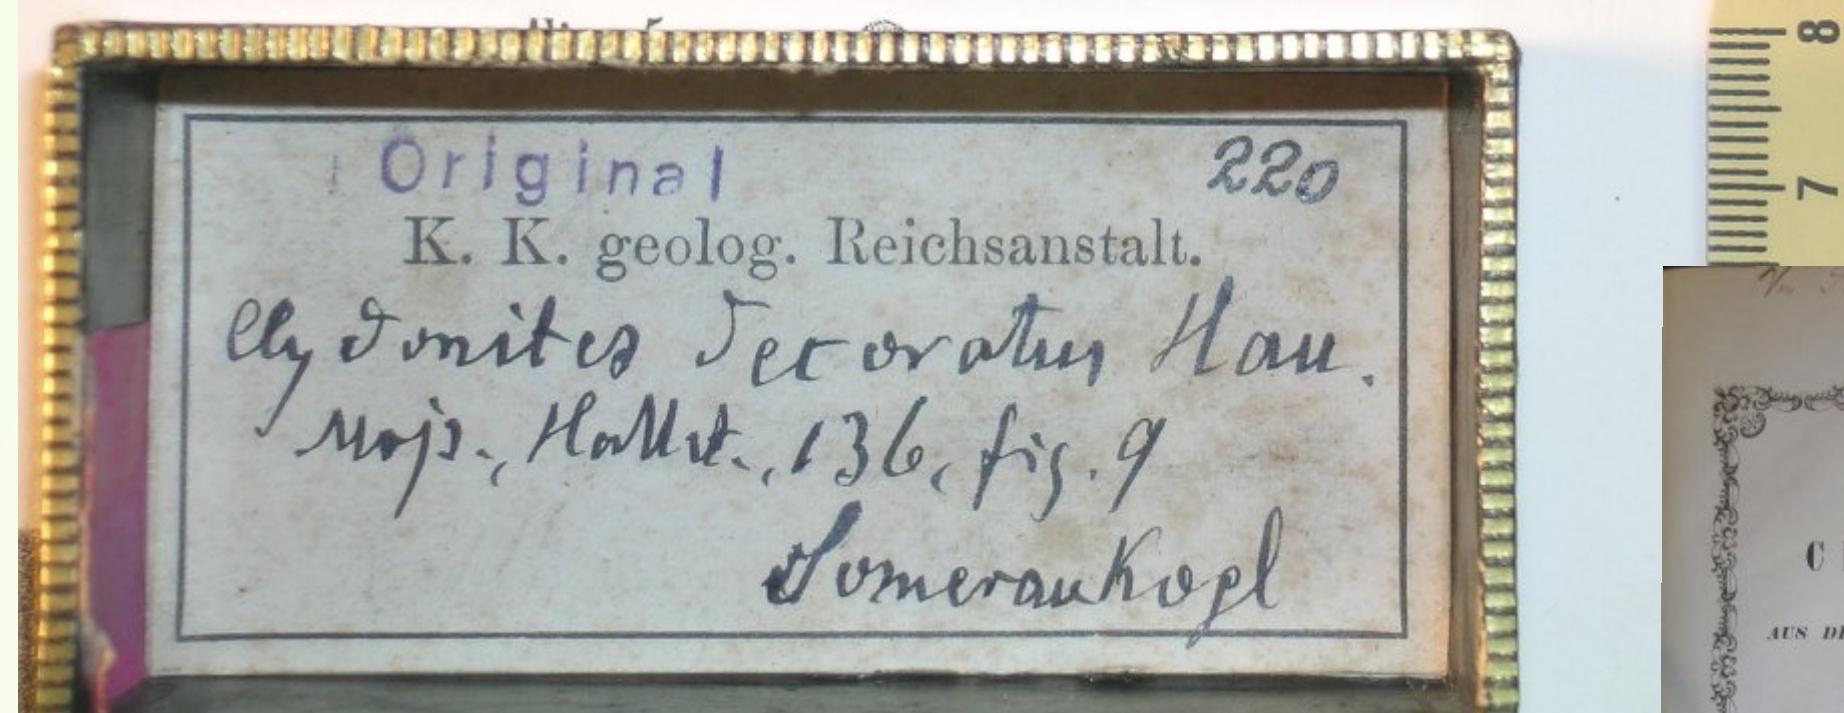 Original 220
K. K. geolog. Reichsanstalt.
Clydonites decoratus Hau.
Mojs., Hallst., 136, fig. 9
Someraukogl
8
7
C
AUS DE